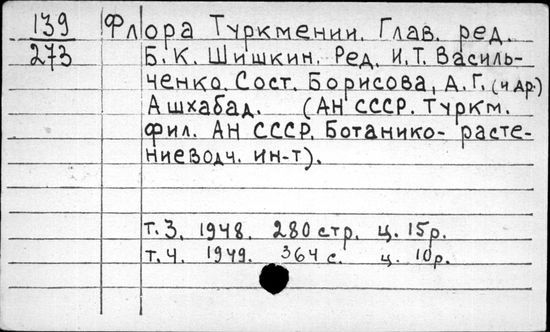 139 Флора Туркмении. Глав. ред.
273 Б. К. Шишкин. Ред. И. Т. Василь-
ченко. Сост. Борисова, А. Г. (и др.)
Ашхабад. (АН СССР. Туркм.
фил. АН СССР. Ботанико-расте-
ниеводч. ин-т).
т. 3. 1948. 280 стр. ц. 15р.
т. 4. 1949. 364 с. ц. 10р.